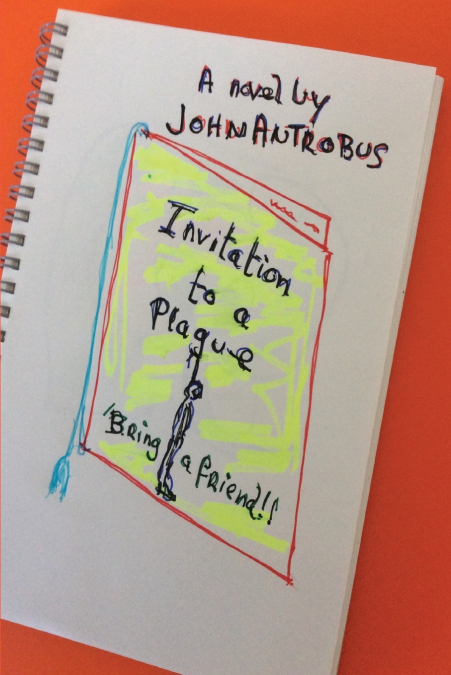 A novel by
JOHN ANTROBUS
Invitation
to a
Plague
"Bring a friend!!